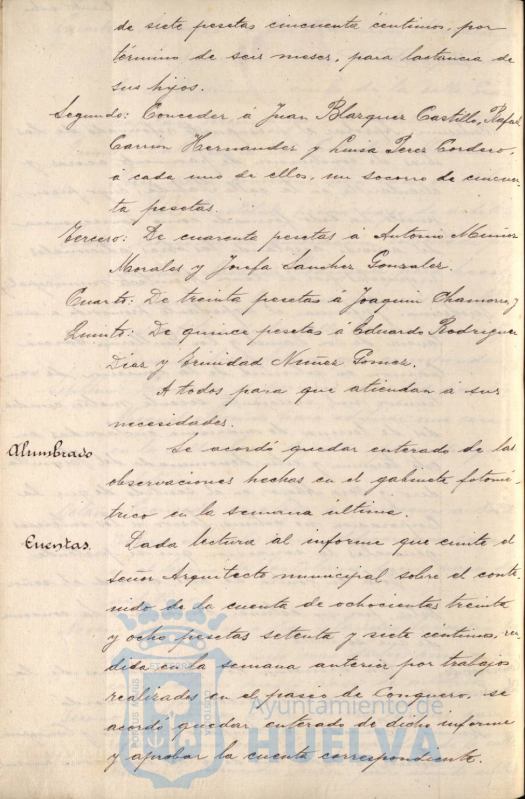 de siete pesetas cincuenta centimos, por
término de seis meses, para lactancia de
sus hijos.
Segundo: Conceder á Juan Blazquez Castillo, Rafael
Carrion Hernandez y Luisa Perez Cordero,
á cada uno de ellos, un socorro de cincuen-
ta pesetas.
Tercero: De cuarenta pesetas á Antonio Muñoz
Morales y Josefa Sanchez Gonzalez.
Cuarto: De treinta pesetas á Joaquin Chamorro, y
Quinto: De quince pesetas á Eduardo Rodriguez
Diaz y Trinidad Nuñez Gomez.
A todos para que atiendan á sus
necesidades.
Alumbrado Se acordó quedar enterado de las
observaciones hechas en el gabinete fotomé-
trico en la semana última.
Cuentas. Dada lectura al informe que emite el
Señor Arquitecto municipal, sobre el conte-
nido de la cuenta de ochocientas treinta
y ocho pesetas setenta y siete centimos, ren-
dida en la semana anterior por trabajos
realizados en el paseo de Conquero, se
acordó quedar enterado de dicho informe
y aprobar la cuenta correspondiente.
Ayuntamiento de
HUELVA